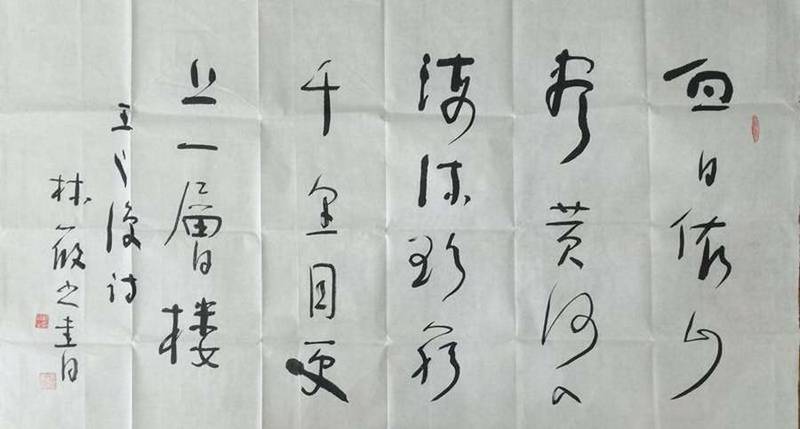 白日依山
盡黄河入
海流欲窮
千里目更
上一層楼
王之涣詩
林筱之書